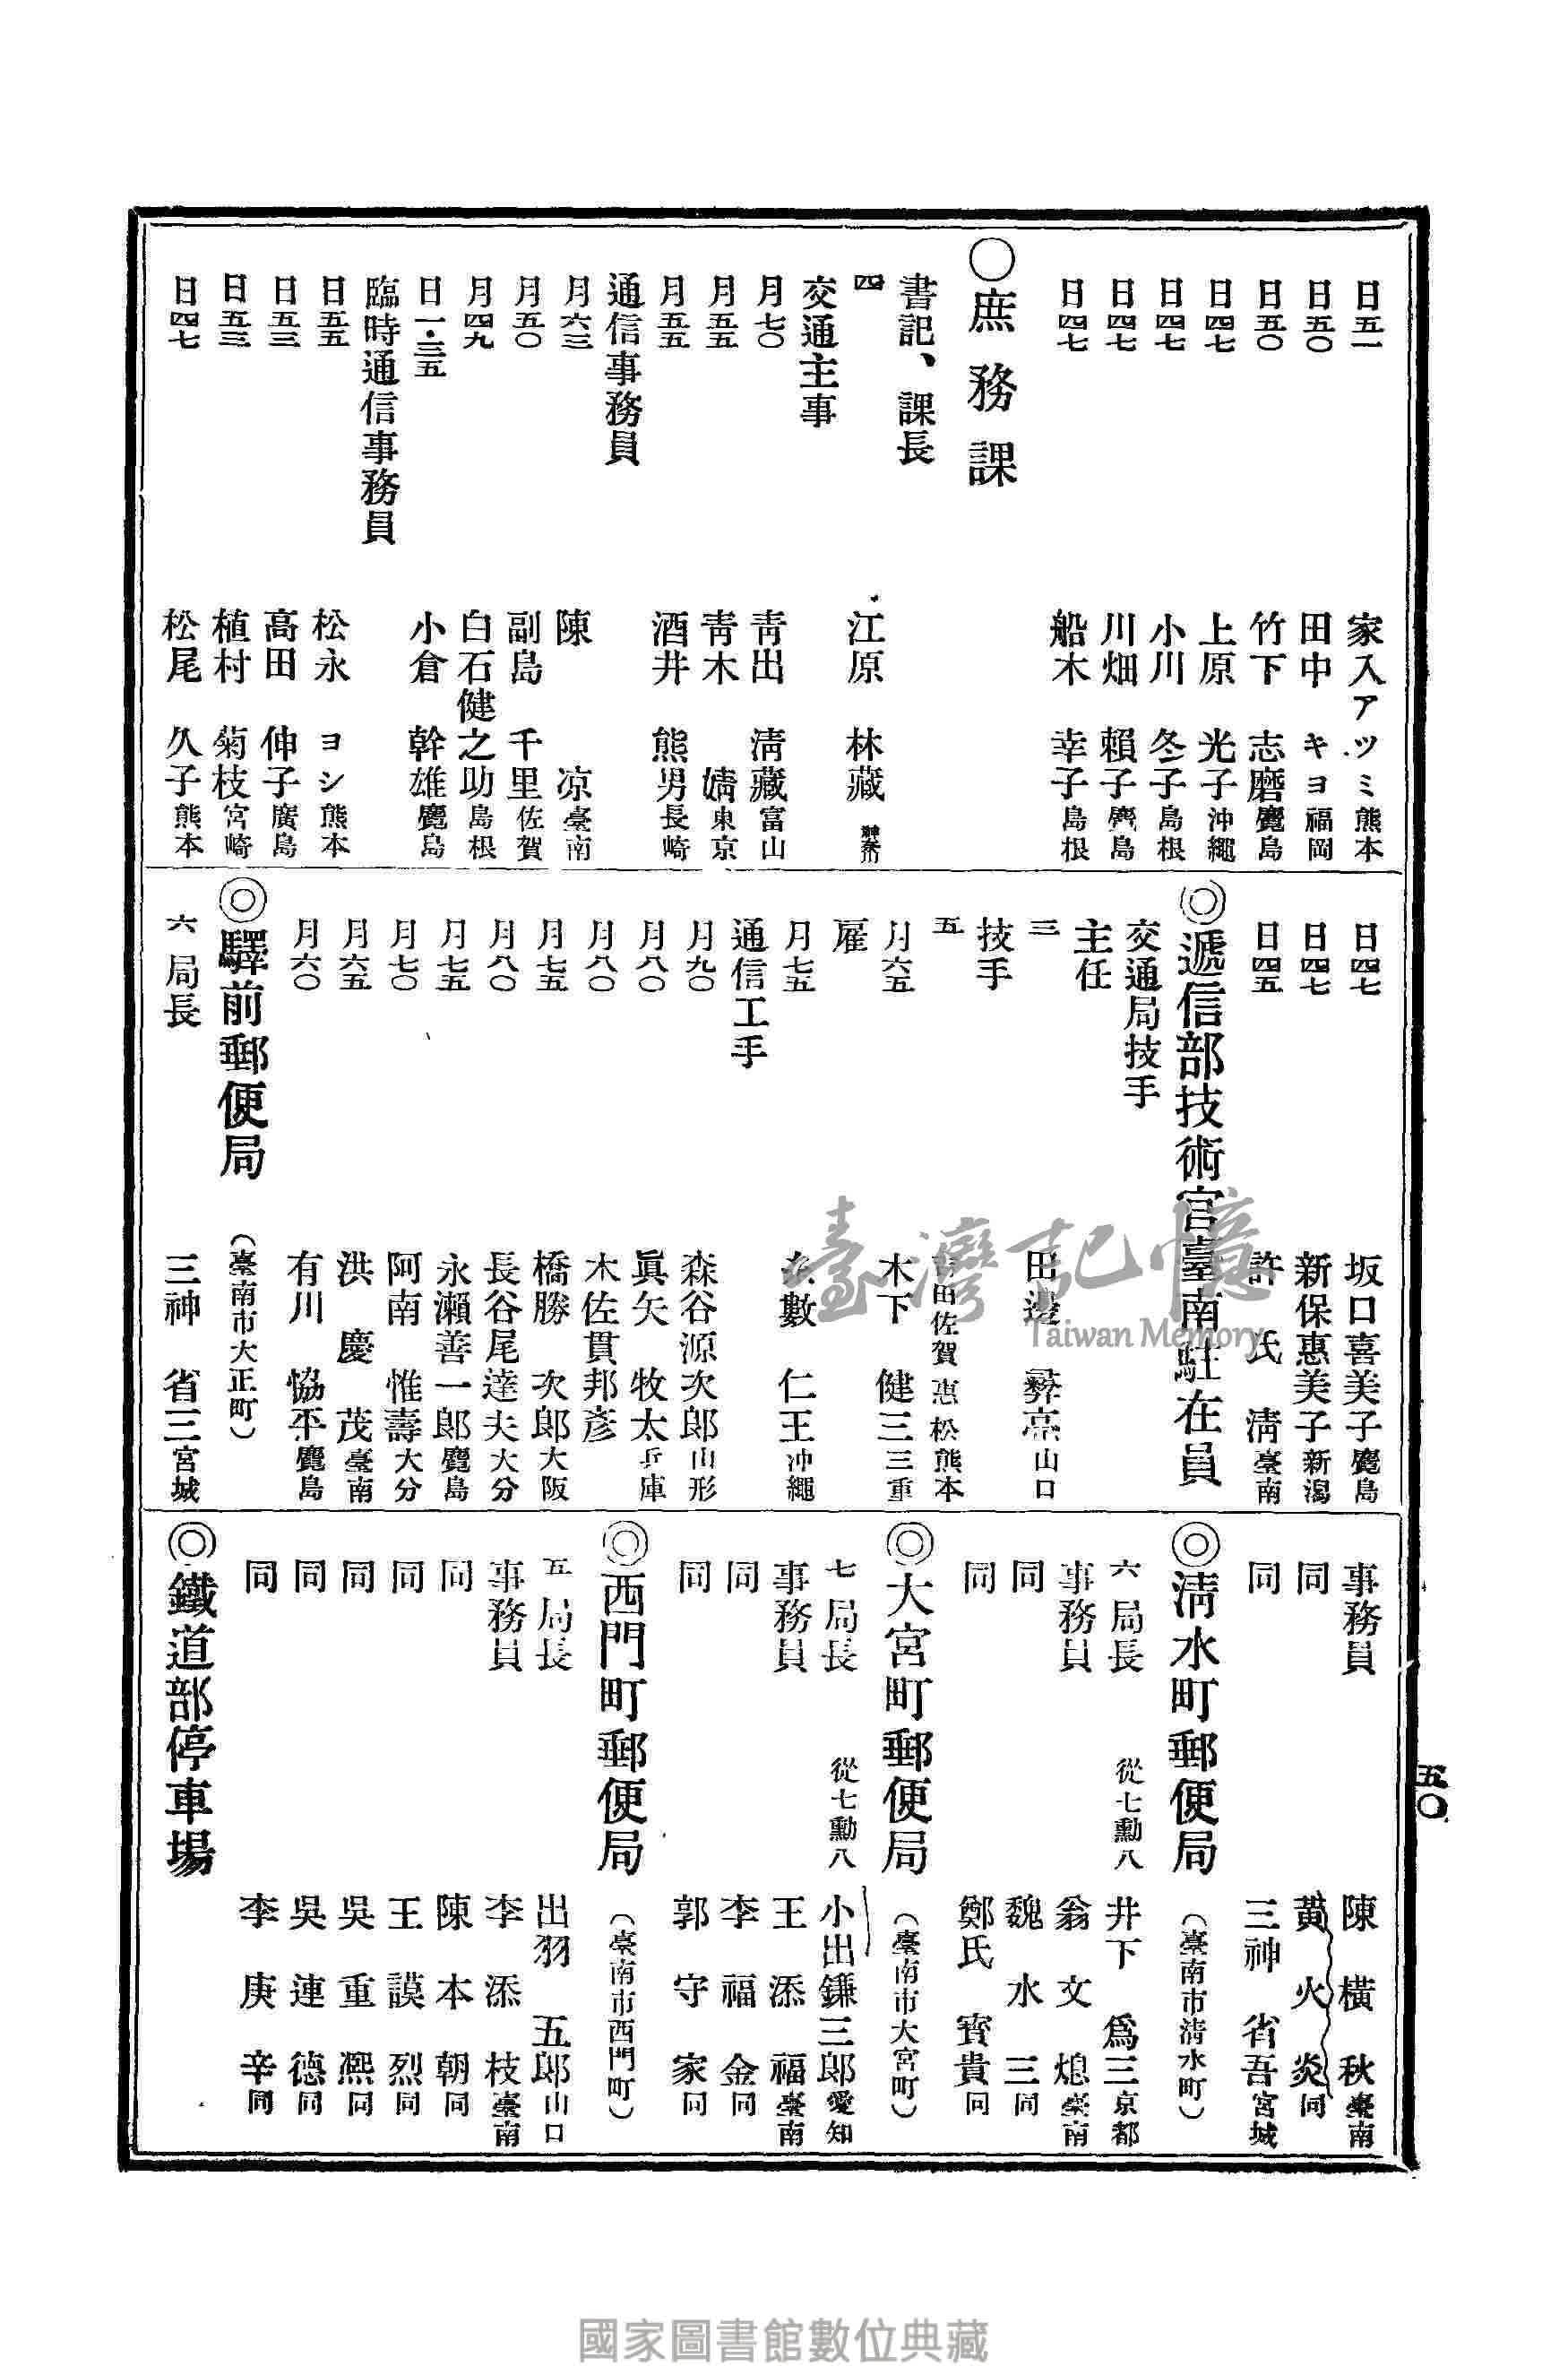 日五一 家入アツミ 熊本
日五〇 田中 キヨ 福岡
日五〇 竹下 志磨 鹿島
日四七 上原 光子 沖繩
日四七 小川 冬子 島根
日四七 川畑 賴子 鹿島
日四七 船木 幸子 島根
〇庶務課
書記、課長
四 江原 林藏
交通主事
月七〇 靑出 淸藏 富山
月五五 靑木 婧 東京
月五五 酒井 熊男 長崎
通信事務員
月六三 陳 凉 臺南
月五〇 副島 千里 佐賀
月四九 白石健之助 島根
日一・三五 小倉 幹雄 鹿島
臨時通信事務員
日五五 松永 ヨシ 熊本
日五三 高田 伸子 廣島
日五三 植村 菊枝 宮崎
日四七 松尾 久子 熊本
日四七 坂口喜美子 鹿島
日四七 新保惠美子 新潟
日四五 許氏 淸 臺南
◎遞信部技術官臺南駐在員
交通局技手
主任
三 田邊 彜亮 山口
技手
五 田佐賀惠松 熊本
月六五 木下 健三 三重
雇
月七五 數 仁王 沖繩
通信工手
月九〇 森谷源次郎 山形
月八〇 眞矢 牧太 兵庫
月八〇 木佐貫邦彥
月七五 橋勝 次郎 大阪
月八〇 長谷尾達夫 大分
月七五 永瀨善一郎 鹿島
月七〇 阿南 惟壽 大分
月六五 洪 慶茂 臺南
月六〇 有川 恊平 鹿島
◎驛前郵便局 (臺南市大正町)
六 局長 三神 省三 宮城
事務員 陳橫秋 臺南
同 黃火炎 同
同 三神 省吾 宮城
◎淸水町郵便局 (臺南市淸水町)
六 局長 從七勳八 井下 爲三 京都
事務員 翁文熄 臺南
同 魏水三 同
同 鄭氏寶貴 同
◎大宮町郵便局 (臺南市大宮町)
七 局長 從七勳八 小出鎌三郎 愛知
事務員 王添福 臺南
同 李福金 同
同 郭守家 同
◎西門町郵便局 (臺南市西門町)
五 局長 出羽 五郎 山口
事務員 李添枝 臺南
同 陳本朝 同
同 王謨烈 同
同 吳重凞 同
同 吳連德 同
同 李庚辛 同
◎鐵道部停車場
五〇
臺灣記憶
Taiwan Memory
國家圖書館數位典藏